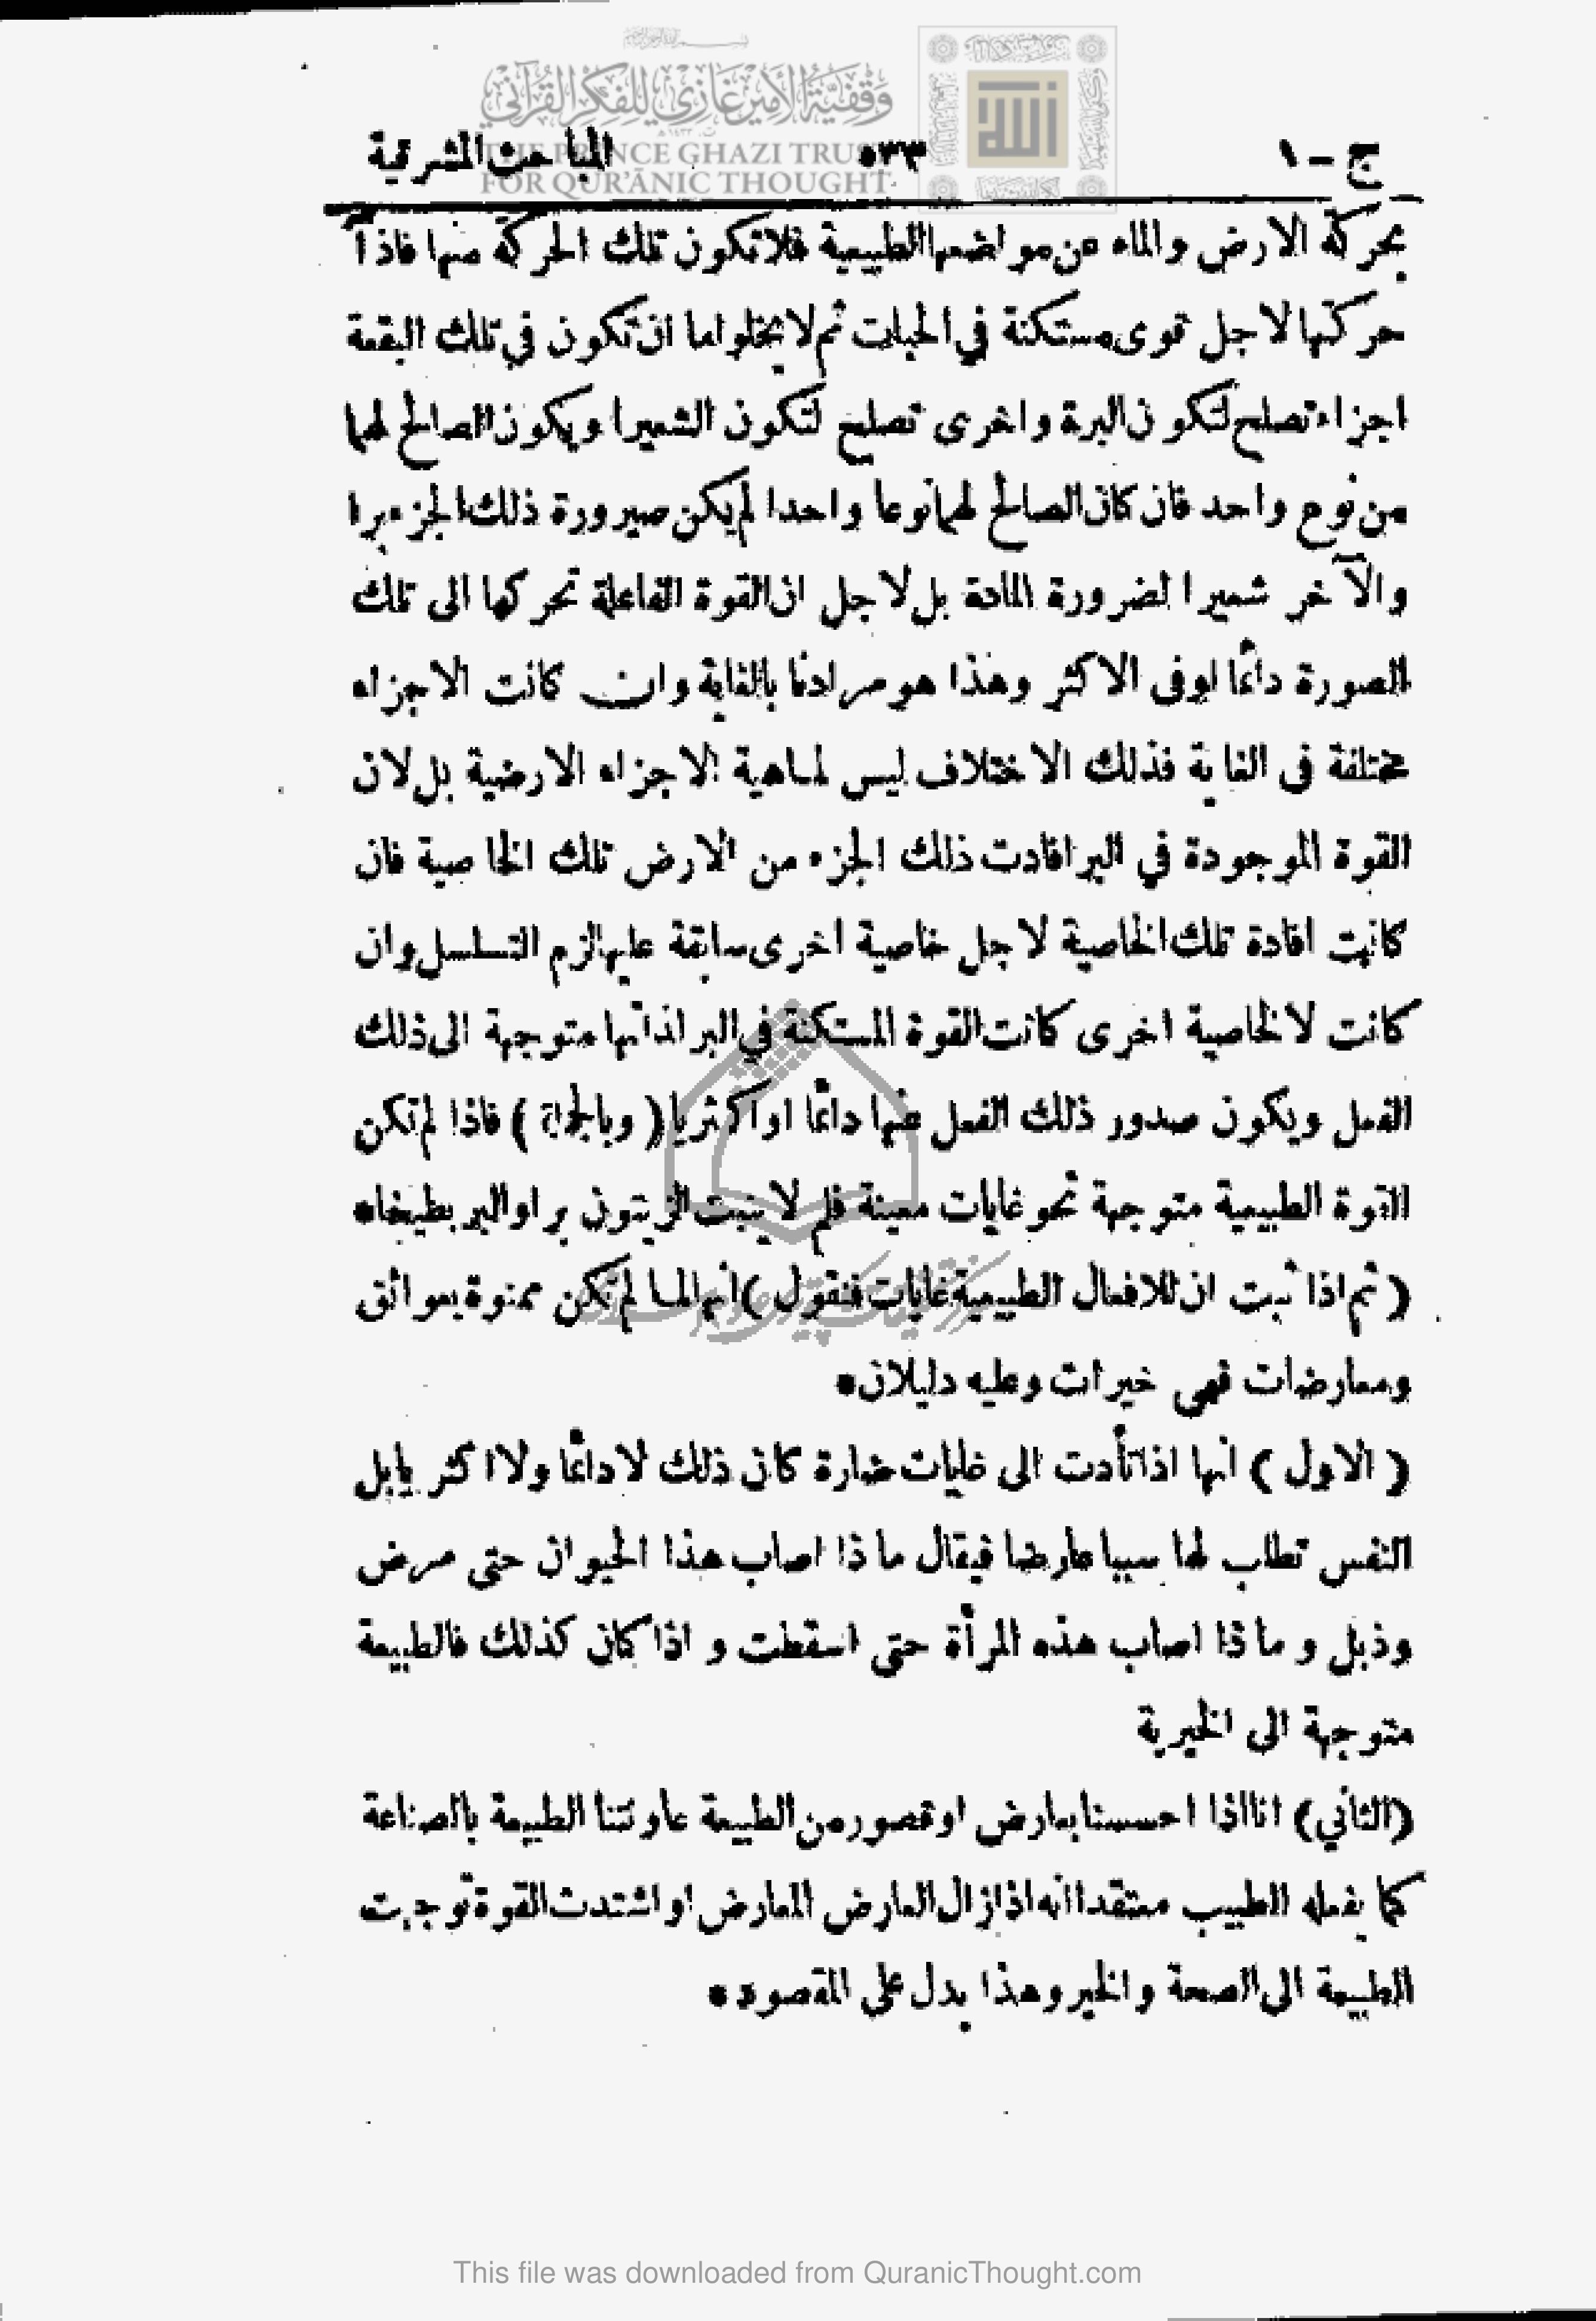 وقفية الأمير غازي للفكر القرآني
THE PRINCE GHAZI TRUST
FOR QUR'ĀNIC THOUGHT
الله
ج – ١ ٥٣٣ المباحث المشرقية
بحركة الارض والماء عن مواضعها الطبيعية فلا تكون تلك الحركة منها فاذاً
حركتها لاجل قوى مستكنة في الحبات ثم لا يخلو اما ان تكون في تلك البقعة
اجزاء تصلح لتكون البرة واخرى تصلح لتكون الشعير او يكون الصالح لهما
من نوع واحد فان كان الصالح لهما نوعا واحدا لم يكن صيرورة ذلك الجزء برا
والآخر شعيرا لضرورة المادة بل لاجل ان القوة الفاعلة تحركها الى تلك
الصورة دائما اوفى الاكثر وهذا هو مرادنا بالغاية وان كانت الاجزاء
مختلفة فى الغاية فذلك الاختلاف ليس لماهية الاجزاء الارضية بل لان
القوة الموجودة في البر افادت ذلك الجزء من الارض تلك الخاصية فان
كانت افادة تلك الخاصية لاجل خاصية اخرى سابقة عليها لزم التسلسل وان
كانت لا لخاصية اخرى كانت القوة المستكنة في البر لذاتها متوجهة الى ذلك
الفعل ويكون صدور ذلك الفعل عنها دائما او اكثريا ( وبالجملة ) فاذا لم تكن
القوة الطبيعية متوجهة نحو غايات معينة فلم لا ينبت الزيتون برا والبر بطيخا*
( ثم اذا ثبت ان للافعال الطبيعية غايات فنقول ) انها لما لم تكن ممنوة بعوائق
ومعارضات فهى خيرات وعليه دليلان*
( الاول ) انها اذا تأدت الى غايات ضارة كان ذلك لا دائما ولا اكثريا بل
النفس تطلب لها سببا عارضا فيقال ماذا اصاب هذا الحيوان حتى مرض
وذبل و ماذا اصاب هذه المرأة حتى اسقطت و اذا كان كذلك فالطبيعة
متوجهة الى الخيرية
(الثاني) انا اذا احسسنا بعارض او قصور من الطبيعة عاونتنا الطبيعة بالصناعة
كما يفعله الطبيب معتقدا انه اذا زال العارض المعارض او اشتدت القوة توجهت
الطبيعة الى الصحة والخير وهذا يدل على المقصود*
This file was downloaded from QuranicThought.com